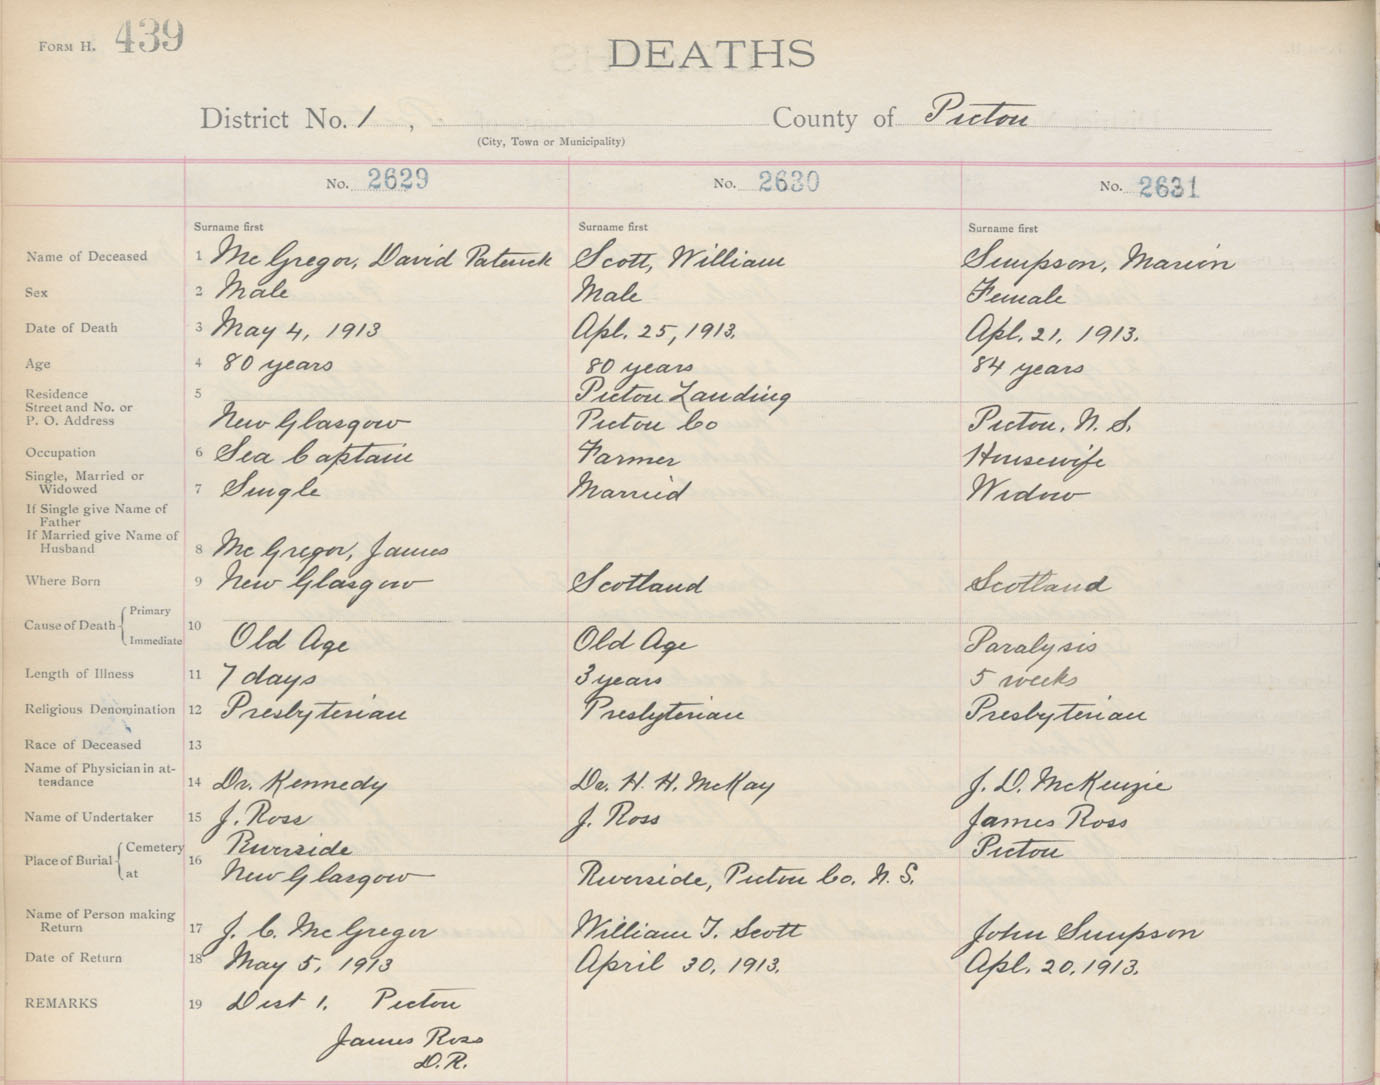 FORM H. 439
DEATHS
District No. 1 , County of Pictou
(City, Town or Municipality)
No. 2629 No. 2630 No. 2631
Surname first Surname first Surname first
Name of Deceased 1 McGregor, David Patrick Scott, William Simpson, Marion
Sex 2 Male Male Female
Date of Death 3 May 4, 1913 Apl. 25, 1913. Apl. 21, 1913.
Age 4 80 years 80 years 84 years
Residence 5 Pictou Landing
Street and No. or
P. O. Address New Glasgow Pictou Co Pictou, N. S.
Occupation 6 Sea Captain Farmer Housewife
Single, Married or
Widowed 7 Single Married Widow
If Single give Name of
Father
If Married give Name of
Husband 8 McGregor, James
Where Born 9 New Glasgow Scotland Scotland
Cause of Death Primary 10
Immediate Old Age Old Age Paralysis
Length of Illness 11 7 days 3 years 5 weeks
Religious Denomination 12 Presbyterian Presbyterian Presbyterian
Race of Deceased 13
Name of Physician in at-
tendance 14 Dr. Kennedy Dr. H. H. McKay J. D. McKenzie
Name of Undertaker 15 J. Ross J. Ross James Ross
Place of Burial Cemetery 16 Riverside Pictou
at New Glasgow Riverside, Pictou Co. N. S.
Name of Person making
Return 17 J. C. McGregor William T. Scott John Simpson
Date of Return 18 May 5, 1913 April 30, 1913. Apl. 20, 1913.
REMARKS 19 Dist 1. Pictou
James Ross
D.R.